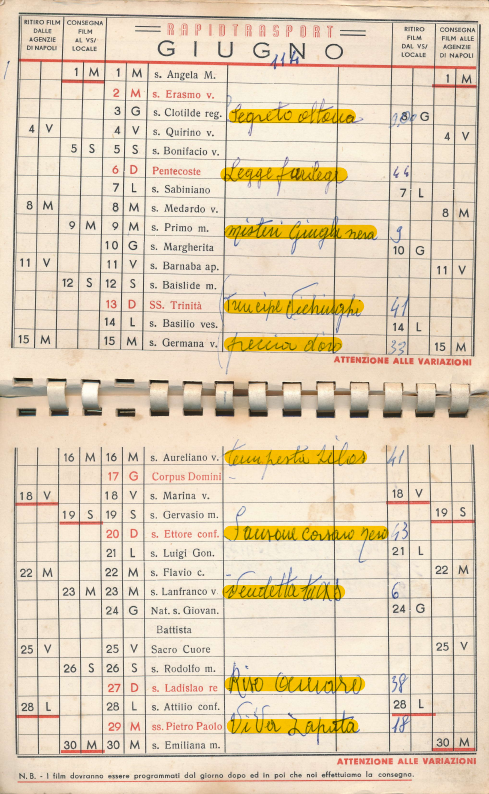 RITIRO FILM DALLE AGENZIE DI NAPOLI
CONSEGNA FILM AL VS/ LOCALE
RAPIDTRANSPORT
GIUGNO
RITIRO FILM DAL VS/ LOCALE
CONSEGNA FILM ALLE AGENZIE DI NAPOLI
1 M 1 M s. Angela M. 1 M
2 M s. Erasmo v.
3 G s. Clotilde reg. Segreto 3 G
4 V 4 V s. Quirino v. 4 V
5 S 5 S s. Bonifacio v.
6 D Pentecoste Legge 44
7 L s. Sabiniano 7 L
8 M 8 M s. Medardo v. 8 M
9 M 9 M s. Primo m. misteri Giungla nera 9
10 G s. Margherita 10 G
11 V 11 V s. Barnaba ap. 11 V
12 S 12 S s. Baislide m.
13 D SS. Trinità Principe 41
14 L s. Basilio ves. 14 L
15 M 15 M s. Germana v. freccia d'oro 33 15 M
ATTENZIONE ALLE VARIAZIONI
16 M 16 M s. Aureliano v. tempesta 41
17 G Corpus Domini
18 V 18 V s. Marina v. 18 V
19 S 19 S s. Gervasio m. 19 S
20 D s. Ettore conf. corsaro nero 13
21 L s. Luigi Gon. 21 L
22 M 22 M s. Flavio c. 22 M
23 M 23 M s. Lanfranco v. Vendetta 6
24 G Nat. s. Giovan. 24 G
Battista
25 V 25 V Sacro Cuore 25 V
26 S 26 S s. Rodolfo m.
27 D s. Ladislao re Riso amaro 38
28 L 28 L s. Attilio conf. 28 L
29 M ss. Pietro Paolo Viva Zapata 18
30 M 30 M s. Emiliana m. 30 M
ATTENZIONE ALLE VARIAZIONI
N.B. - I film dovranno essere programmati dal giorno dopo ed in poi che noi effettuiamo la consegna.